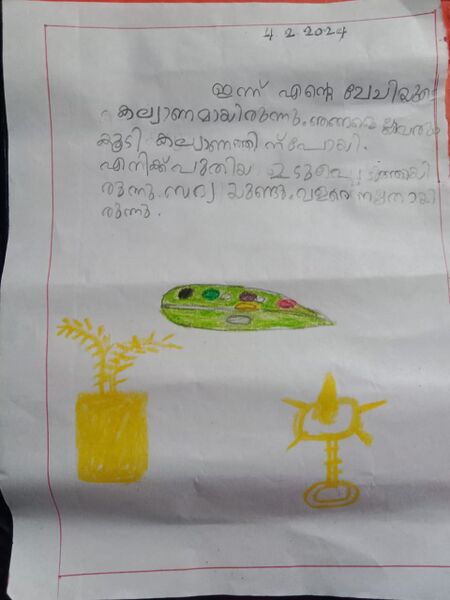 4 2 2024
ഇന്ന് എന്റെ ചേചിയുടെ
കല്യാണമായിരുന്നു. ഞങ്ങളെ
കൂടി കല്യാണത്തിന് പോയി.
എനിക്ക് പുതിയ ഉടുപ്പെ
രുന്നു. സദ്യ യുണ്ടു. വളരെ നല്ലതായി
രുന്നു.